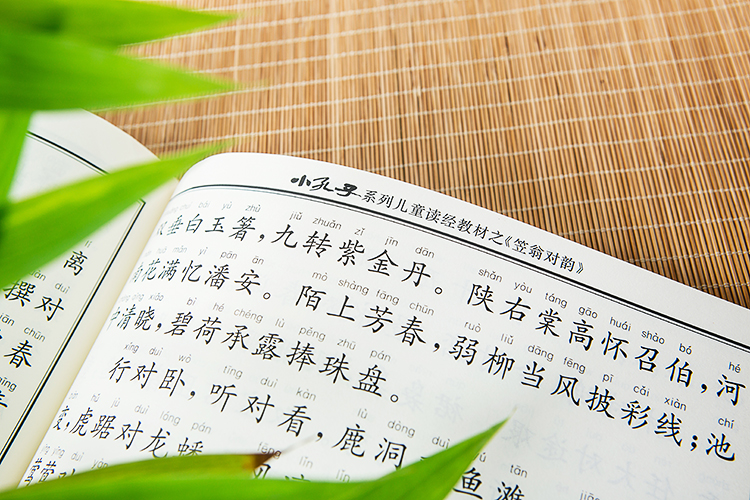 离
撰对
chūn
春
小孔子系列儿童读经教材之《笠翁对韵》
bái yù zhù jiǔ zhuǎn zǐ jīn dān shǎn yòu táng gāo huái shào bó hé
垂白玉箸，九转紫金丹。陕右棠高怀召伯，河
mǎn yì pān ān mò shàng fāng chūn ruò liǔ dāng fēng pī cǎi xiàn chí
花满忆潘安。陌上芳春，弱柳当风披彩线；池
xiǎo bì hé chéng lù pěng zhū pán
清晓，碧荷承露捧珠盘。
xíng duì wò tīng duì kàn lù dòng tān
行对卧，听对看，鹿洞 鱼滩
hǔ jù duì lóng pán
虎踞对龙蟠